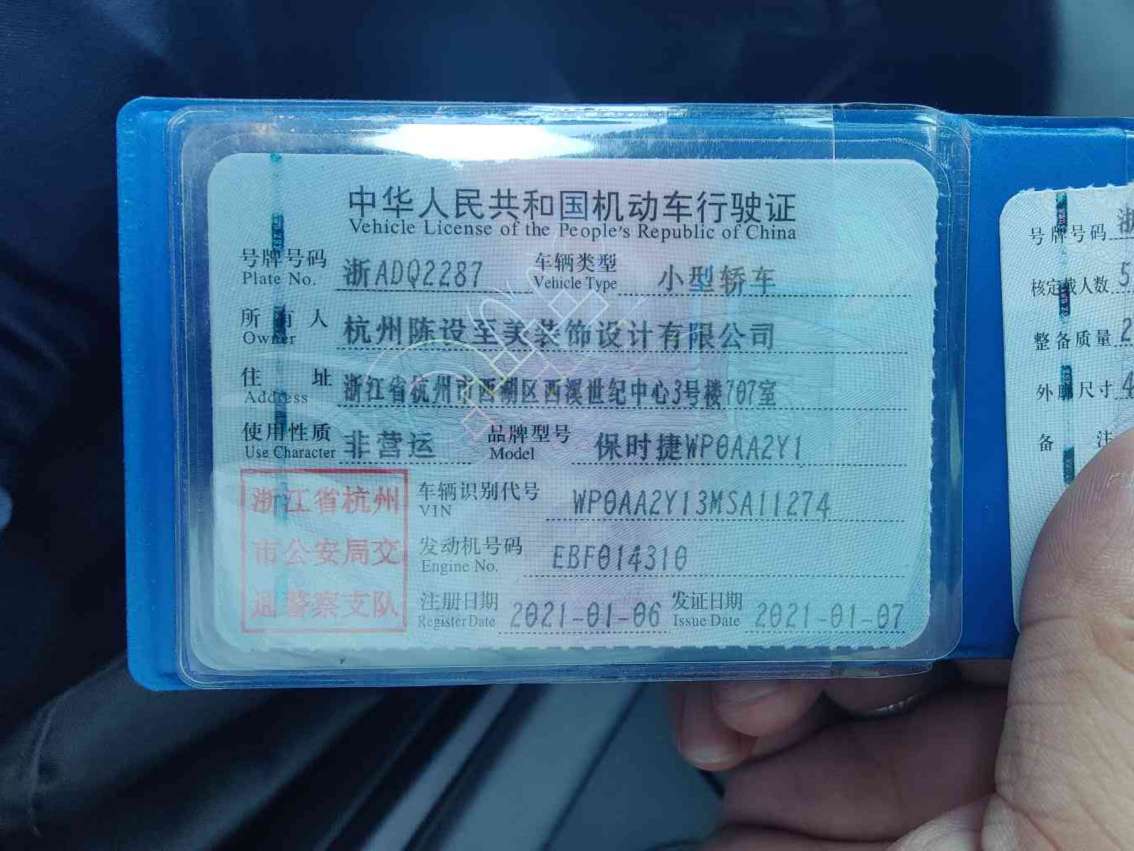 中华人民共和国机动车行驶证
Vehicle License of the People's Republic of China
号牌号码 浙ADQ2287 车辆类型 小型轿车
Plate No. Vehicle Type
所有人 杭州陈设至美装饰设计有限公司
Owner
住址 浙江省杭州市西湖区西溪世纪中心3号楼707室
Address
使用性质 非营运 品牌型号 保时捷WP0AA2Y1
Use Character Model
浙江省杭州
市公安局交
通警察支队
车辆识别代号 WP0AA2Y13MSA11274
VIN
发动机号码 EBF014310
Engine No.
注册日期 2021-01-06 发证日期 2021-01-07
Register Date Issue Date
号牌号码 浙
核定载人数 5
整备质量 2
外廓尺寸 4
备注